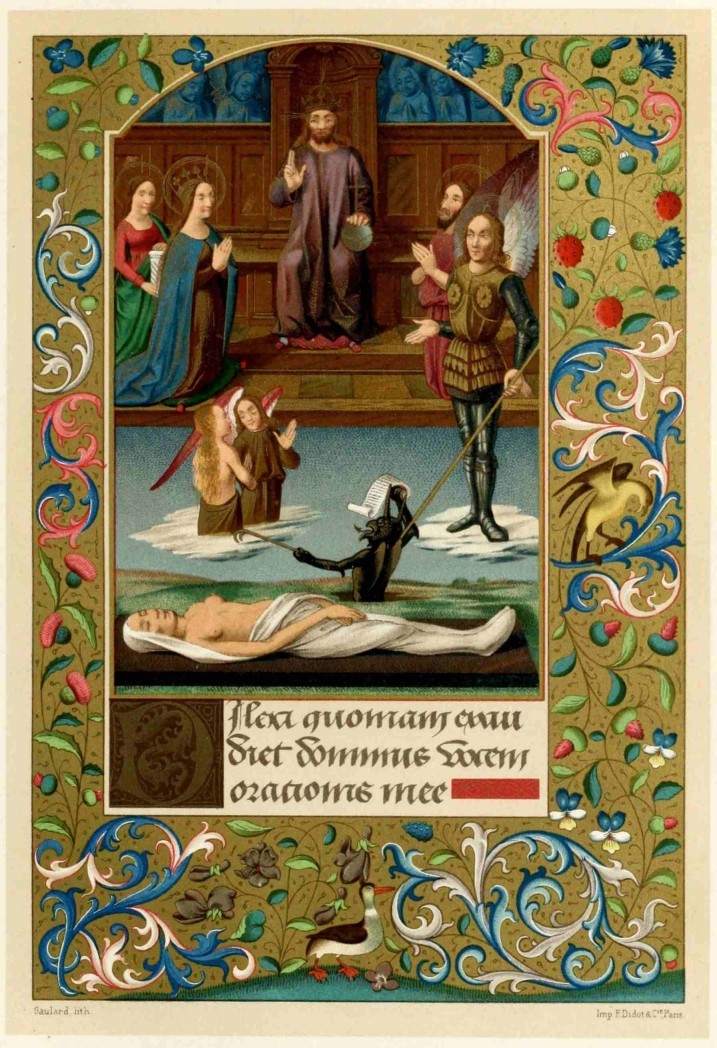 Dilexi quoniam exau
diet dominus vocem
orationis mee
Gaulard, lith.
Imp. F. Didot & Cie. Paris